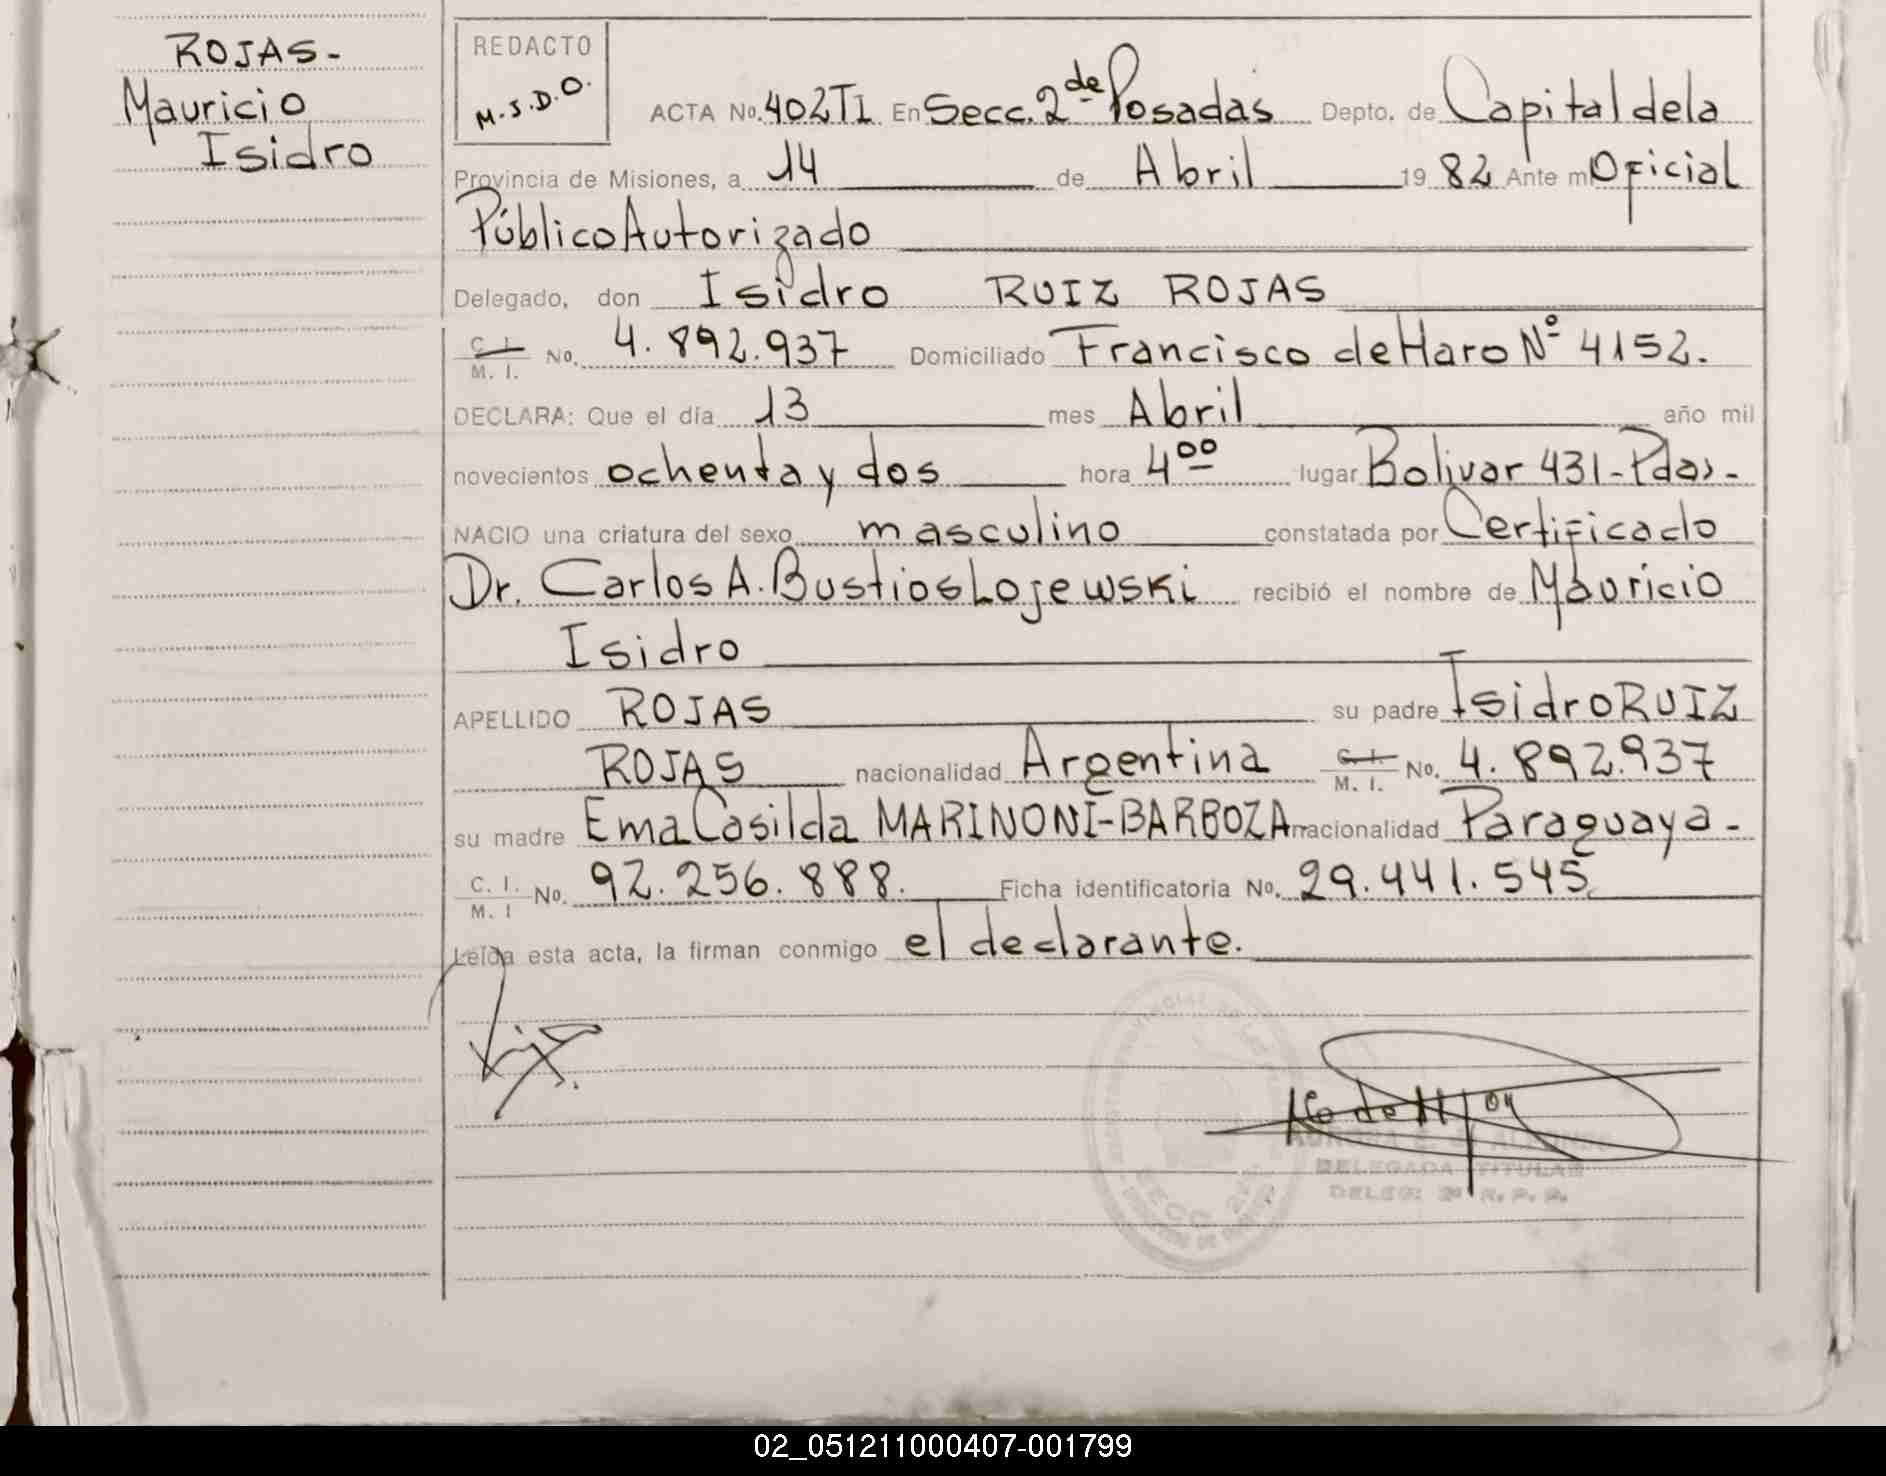 ROJAS-
Mauricio
Isidro
REDACTO
M.S.D.O.
ACTA No. 402TI En Secc. 2de Posadas Depto. de Capital dela
Provincia de Misiones, a 14 de Abril 19 82 Ante mi Oficial
Público Autorizado
Delegado, don Isidro RUIZ ROJAS
C. I. M. I. No. 4.892.937 Domiciliado Francisco de Haro Nº 4152.
DECLARA: Que el día 13 mes Abril año mil
novecientos ochenta y dos hora 4oo lugar Bolivar 431-Pdas-
NACIO una criatura del sexo masculino constatada por Certificado
Dr. Carlos A. Bustios Lojewski recibió el nombre de Mauricio
Isidro
APELLIDO ROJAS su padre Isidro RUIZ
ROJAS nacionalidad Argentina C. I. M. I. No. 4.892.937
su madre Ema Casilda MARINONI-BARBOZA nacionalidad Paraguaya-
C. I. M. I No. 92.256.888. Ficha identificatoria No. 29.441.545
Leída esta acta, la firman conmigo el declarante.
DELEGADA TITULAR
02_051211000407-001799